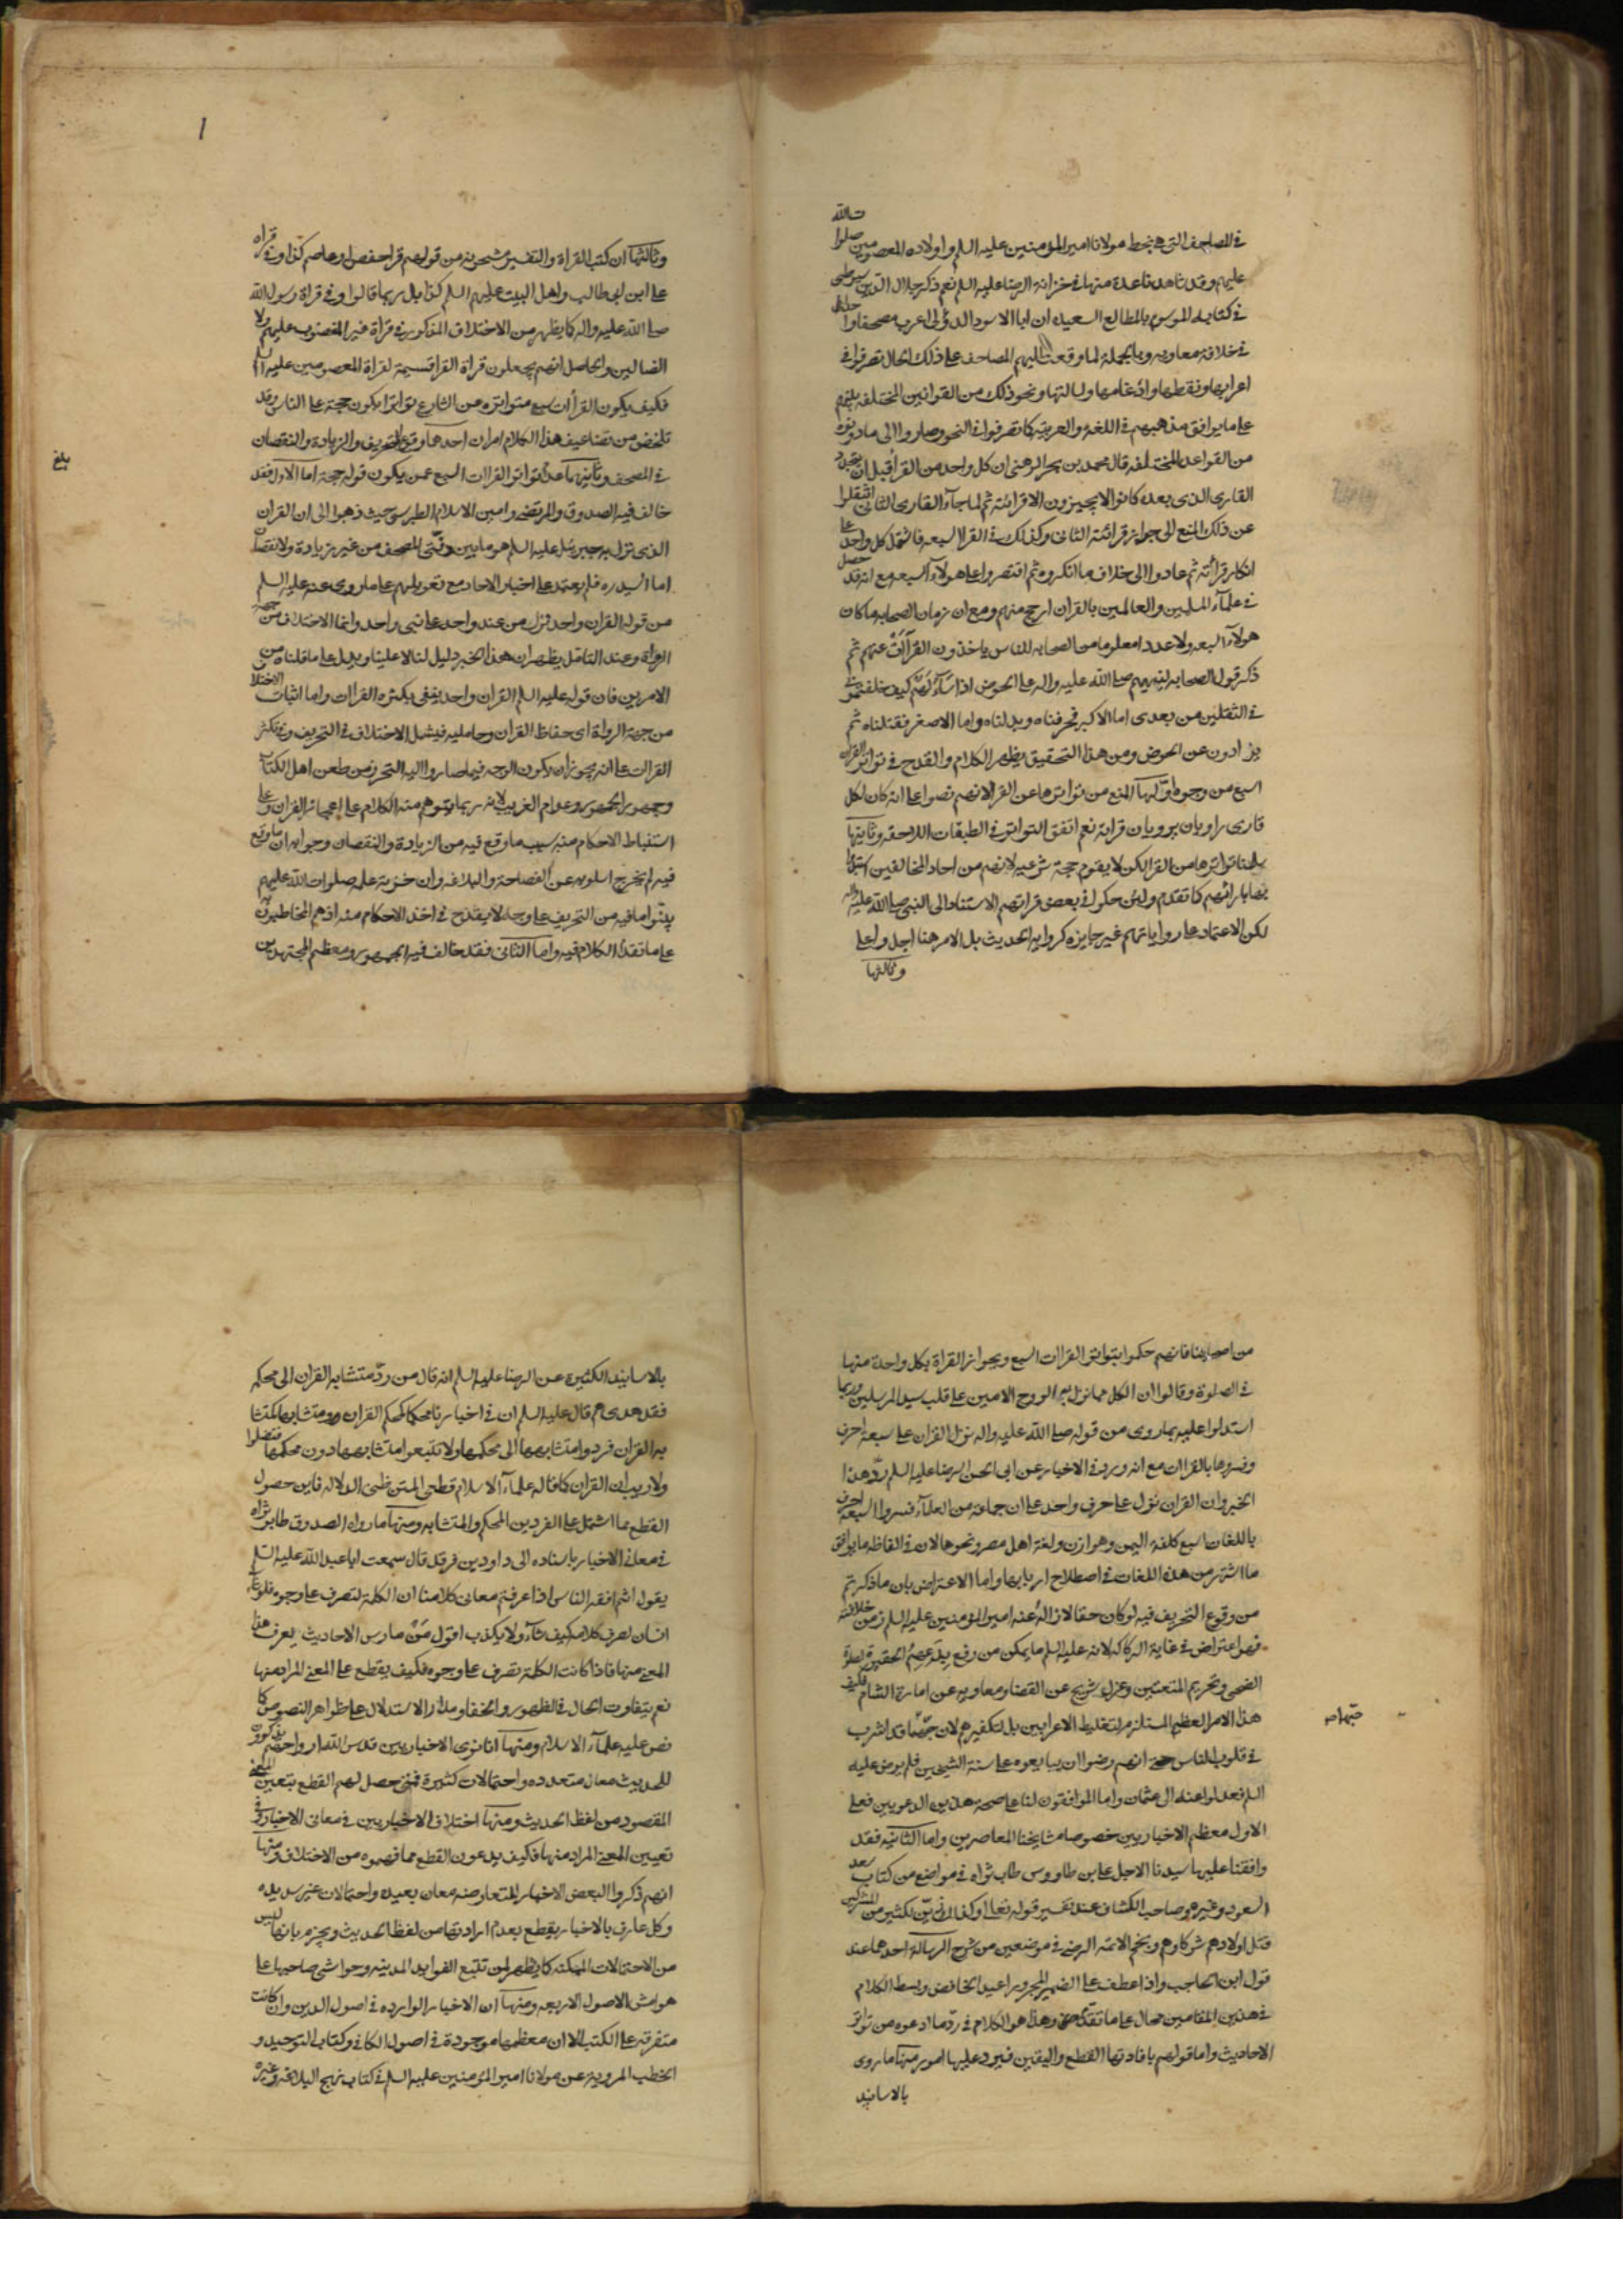 في المصاحف التي هي بخط مولانا امير المؤمنين عليه السلم واولاده المعصومين صلوات الله
عليهم وقد شاهدنا عدة منها في خزانة الرضا عليه السلم نعم ذكر جلال الدين سيوطي
في كتابه الموسوم بالمطالع السعيده ان ابا الاسود الدؤلي اعرب مصحفا واحدا
في خلافة معاويه وبالجملة لما وقعت اليهم المصاحف على ذلك الحال تصرفوا في
اعرابها ونقطها وادغامها وامالتها ونحو ذلك من القوانين المختلفه بينهم
على ما يوافق مذهبهم في اللغة والعربيه كما تصرفوا في النحو وصاروا الى ما دونوه
من القواعد المختلفه قال محمد بن بحر الرهني ان كل واحد من القرأ قبل ان يتجدد
القاري الذي بعده كانوا لا يجيزون الا قرائته ثم لما جاء القاري الثاني انتقلوا
عن ذلك المنع الى جواز قرائة الثاني وكذلك في القرا السبعه فاشتمل كل واحد على
انكار قرائته ثم عادوا الى خلاف ما انكروه ثم اقتصروا على هولآء السبعه مع انه قد حصل
في علمآء المسلمين والعالمين بالقران ارجح منهم ومع ان زمان الصحابه ما كان
هولآء السبعه ولا عددا معلوما من الصحابه للناس ياخذون القرآات عنهم ثم
ذكر قول الصحابه لنبيهم صلى الله عليه واله على الحوض اذا سألهم كيف خلفتموني
في الثقلين من بعدي اما الاكبر فحرفناه وبدلناه واما الاصغر فقتلناه ثم
يذادون عن الحوض ومن هذا التحقيق يظهر الكلام والقدح في تواتر القراات
السبع من وجوه اولها المنع من تواترها عن القرا لانهم نصوا على انه كان لكل
قاري راويان يرويان قرائته نعم اتفق التواتر في الطبقات اللاحقه وثانيها
سلمنا تواترها من القرا لكن لا يقوم حجة شرعيه لانهم من احاد المخالفين استبدوا
بارائهم كما تقدم ولئن حكوا في بعض قراتهم الاستناد الى النبي صلى الله عليه واله
لكن الاعتماد على رواياتهم غير جايزه كروايه الحديث بل الامر هنا اجل واعلى
وثالثها
وثالثها ان كتب القراة والتفسير مشحونة من قولهم قرا حفص او عاصم كذا وفي قراه
على ابن ابي طالب واهل البيت عليهم السلم كذا بل ربما قالوا وفي قراة رسول الله
صلى الله عليه واله كما يظهر من الاختلاف المذكور في قراة غير المغضوب عليهم ولا
الضالين والحاصل انهم يجعلون قراة القرا قسيمة لقراة المعصومين عليهم السلم
فكيف يكون القراات سبع متواتره من الشارع تواترا يكون حجة على الناس وقد
تلخص من تضاعيف هذا الكلام امران احدهما وقوع التحريف والزيادة والنقصان
في المصحف وثانيهما عدم تواتر القراات السبع عمن يكون قوله حجة اما الاول فقد
خالف فيه الصدوق والمرتضى وامين الاسلام الطبرسي حيث ذهبوا الى ان القران
الذي نزل به جبرئيل عليه السلم هو ما بين دفتي المصحف من غير زيادة ولا نقصان
اما السيد ره فلم يعتمد على اخبار الاحاد مع تعويلهم على ما روي عنه عليه السلم
من قوله القران واحد نزل من عند واحد على نبي واحد وانما الاختلاف من جهة
الرواة وعند التامل يظهر ان هذا الخبر دليل لنا لا علينا ويدل على ما قلناه من
الامرين فان قوله عليه السلم القران واحد ينفي بكثره القراات واما اثبات الاختلا
من جهة الرواة اي حفاظ القران وحامليه فيشمل الاختلاف في التحريف وفي تكثر
القراات على انه يجوز ان يكون الوجه فيما صاروا اليه التحرز من طعن اهل الكتاب
وجمهور الجمهور وعوام الغريب لانه ربما يتوهم منه الكلام على اعجاز القران وعلى
استنباط الاحكام منه بسبب ما وقع فيه من الزيادة والنقصان وجوابه ان ما وقع
فيه لم يخرج اسلوبه عن الفصاحة والبلاغه وان خزنة علمه صلوات الله عليهم
بينوا ما فيه من التحريف على وجه لا يقدح في اخذ الاحكام منه اذ هم المخاطبون به
على ما تقدم الكلام فيه واما الثاني فقد خالف فيه الجمهور ومعظم المجتهدين
بلغ
من اصحابنا فانهم حكموا بتواتر القراات السبع وبجواز القراة بكل واحدة منها
في الصلوة وقالوا ان الكل مما نزل به الروح الامين على قلب سيد المرسلين وربما
استدلوا عليه بما روى من قوله صلى الله عليه واله نزل القران على سبعة احرف
وفسروها بالقراات مع انه ورد في الاخبار عن ابي الحسن الرضا عليه السلم رد هذا
الخبر وان القران نزل على حرف واحد على ان جماعة من العلمآء فسروا السبعة احرف
باللغات السبع كلغة اليمن وهوازن ولغة اهل مصر ونحوها لان في الفاظه ما يوافق
ما اشتهر من هذه اللغات في اصطلاح اربابها واما الاعتراض بان ما ذكرتم
من وقوع التحريف فيه لو كان حقا لازاله عنه امير المؤمنين عليه السلم زمن خلافته
فهو اعتراض في غاية الركاكه لانه عليه السلم ما يمكن من رفع بدعهم الحقيرة كصلوة
الضحى وتحريم المتعتين وعزل شريح عن القضا ومعاويه عن امارة الشام فكيف
هذا الامر العظيم المستلزم لتغليط الاعرابين بل لتكفيرهم لان حبهما قد اشرب
في قلوب الناس حتى انهم رضوا ان يبايعوه على سنة الشيخين فلم يرض عليه
السلم فعدلوا عنه الى عثمان واما الموافقون لنا على صحة هذين الدعويين فعلى
الاول معظم الاخباريين خصوصا مشايخنا المعاصرين واما الثانيه فقد
وافقنا عليها سيدنا الاجل علي بن طاووس طاب ثراه في مواضع من كتاب سعد
السعود وغيره وصاحب الكشاف عند تفسير قوله تعالى وكذلك زين لكثير من المشركين
قتل اولادهم شركاوهم ونجم الائمه الرضي في موضعين من شرح الرسالة احدهما عند
قول ابن الحاجب واذا عطف على الضمير المجرور اعيد الخافض وبسط الكلام
في هذين المقامين محال على ما تقدم وهذا هو الكلام في رد ما ادعوه من تواتر
الاحاديث واما قولهم بافادتها القطع واليقين فيرد عليها امور منها ما روى
بالاسانيد
حبهما صح
بالاسانيد الكثيرة عن الرضا عليه السلم انه قال من رد متشابه القران الى محكمه
فقد هدى ثم قال عليه السلم ان في اخبارنا محكما كمحكم القران ومتشابها كمتشا
به القران فردوا متشابهها الى محكمها ولا تتبعوا متشابهها دون محكمها فتضلوا
ولا ريب ان القران كما قاله علمآء الاسلام قطعي المتن ظني الدلاله فاين حصول
القطع مما اشتمل على الفردين المحكم والمتشابه ومنها ما رواه الصدوق طاب ثراه
في معاني الاخبار باسناده الى داود بن فرقد قال سمعت ابا عبد الله عليه السلم
يقول انتم افقه الناس اذا عرفتم معاني كلامنا ان الكلمة لتصرف على وجوه فلو شآء
انسان لصرف كلامه كيف شآء ولا يكذب اقول من مارس الاحاديث يعرف هذا
المعنى منها فاذا كانت الكلمة تصرف على وجوه فكيف يقطع على المعنى المراد منها
نعم يتفاوت الحال في الظهور والخفاء ومدار الاستدلال على ظواهر النصوص كما
نص عليه علمآء الاسلام ومنها انا نرى الاخباريين قدس الله ارواحهم يذكرون
للحديث معان متعدده واحتمالات كثيرة فمتى حصل لهم القطع بتعيين المعنى
المقصود من لفظ الحديث ومنها اختلاف الاخباريين في معاني الاخبار وفي
تعيين المعنى المراد منها فكيف يدعون القطع مما فهموه من الاختلاف ومنها
انهم ذكروا لبعض الاخبار المتعارضه معان بعيده واحتمالات غير سديده
وكل عارف بالاخبار يقطع بعدم ارادتها من لفظ الحديث ويجزم بانها ليس
من الاحتمالات الممكنه كما يظهر لمن تتبع الفوايد المدنيه وحواشي صاحبها على
هوامش الاصول الاربعه ومنها ان الاخبار الوارده في اصول الدين وان كانت
متفرقة على الكتب الا ان معظمها موجودة في اصول الكافي وكتاب التوحيد و
الخطب المروية عن مولانا امير المؤمنين عليه السلم في كتاب نهج البلاغه وغيره